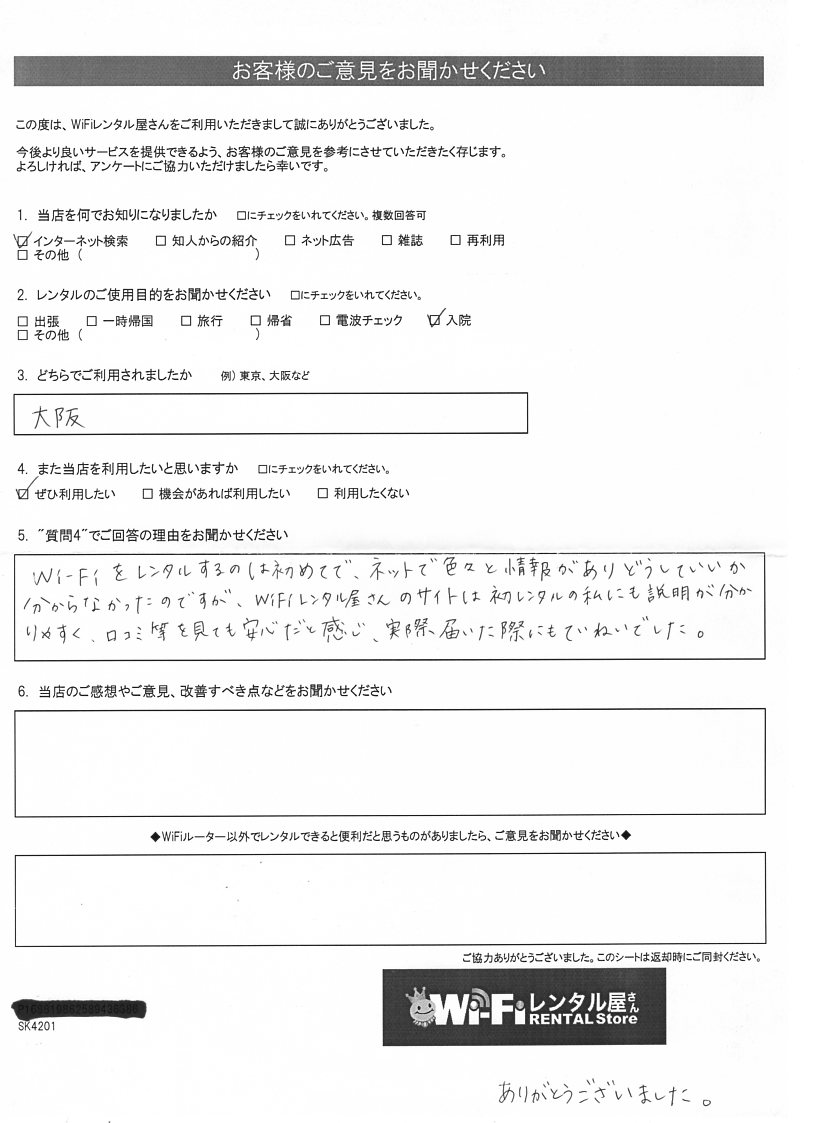 お客様のご意見をお聞かせください
この度は、WiFiレンタル屋さんをご利用いただきまして誠にありがとうございました。
今後より良いサービスを提供できるよう、お客様のご意見を参考にさせていただきたく存じます。
よろしければ、アンケートにご協力いただけましたら幸いです。
1. 当店を何でお知りになりましたか □にチェックをいれてください。複数回答可
☑インターネット検索 □ 知人からの紹介 □ ネット広告 □ 雑誌 □ 再利用
□ その他 ( )
2. レンタルのご使用目的をお聞かせください □にチェックをいれてください。
□ 出張 □ 一時帰国 □ 旅行 □ 帰省 □ 電波チェック ☑入院
□ その他 ( )
3. どちらでご利用されましたか 例) 東京、大阪など
大阪
4. また当店を利用したいと思いますか □にチェックをいれてください。
☑ぜひ利用したい □ 機会があれば利用したい □ 利用したくない
5. “質問4”でご回答の理由をお聞かせください
Wi-Fiをレンタルするのは初めてで、ネットで色々と情報がありどうしていいか
分からなかったのですが、WiFiレンタル屋さんのサイトは初レンタルの私にも説明が分か
りやすく、口コミ等を見ても安心だと感じ、実際届いた際にもていねいでした。
6. 当店のご感想やご意見、改善すべき点などをお聞かせください
◆WiFiルーター以外でレンタルできると便利だと思うものがありましたら、ご意見をお聞かせください◆
ご協力ありがとうございました。このシートは返却時にご同封ください。
Wi-Fiレンタル屋さん
RENTAL Store
SK4201
ありがとうございました。